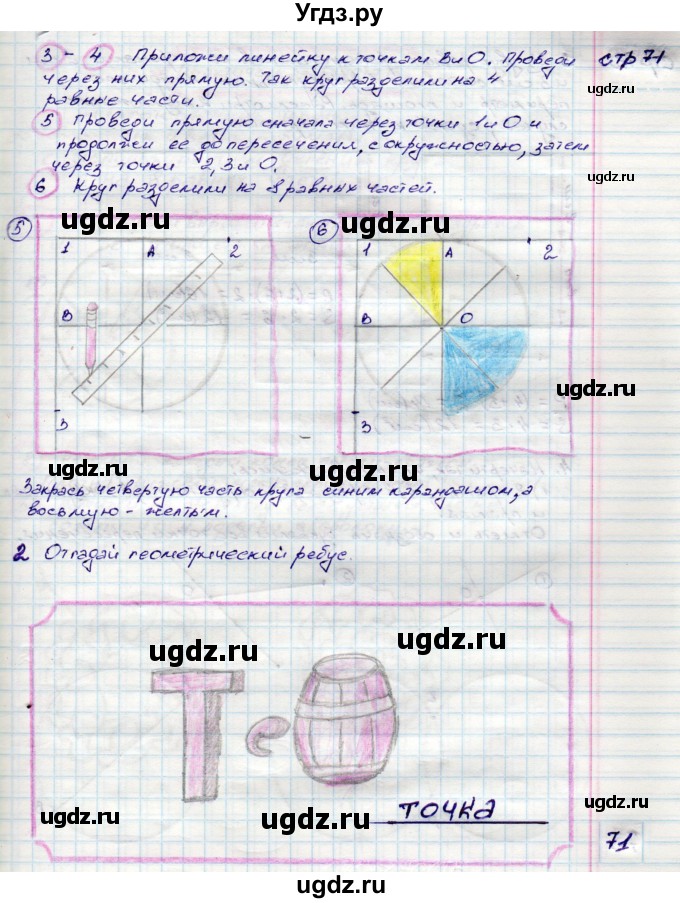 Угдз.ру
3 - 4 Приложи линейку к точкам В и О. Проведи стр 71
через них прямую. Так круг разделили на 4
равные части.
5 Проведи прямую сначала через точки 1 и О и
продолжи ее до пересечения, с окружностью, затем
через точки 2, 3 и О.
6 Круг разделили на 8 равных частей.
ugdz.ru
ugdz.ru
ugdz.ru
5
1 A 2
B
3
6
1 A 2
B O
3
ugdz.ru
ugdz.ru
ugdz.ru
Закрась четвертую часть круга синим карандашом, а
восьмую - желтым.
2 Отгадай геометрический ребус.
ugdz.ru
ugdz.ru
Т
ugdz.ru
ugdz.ru
ugdz.ru
точка
71
ugdz.ru